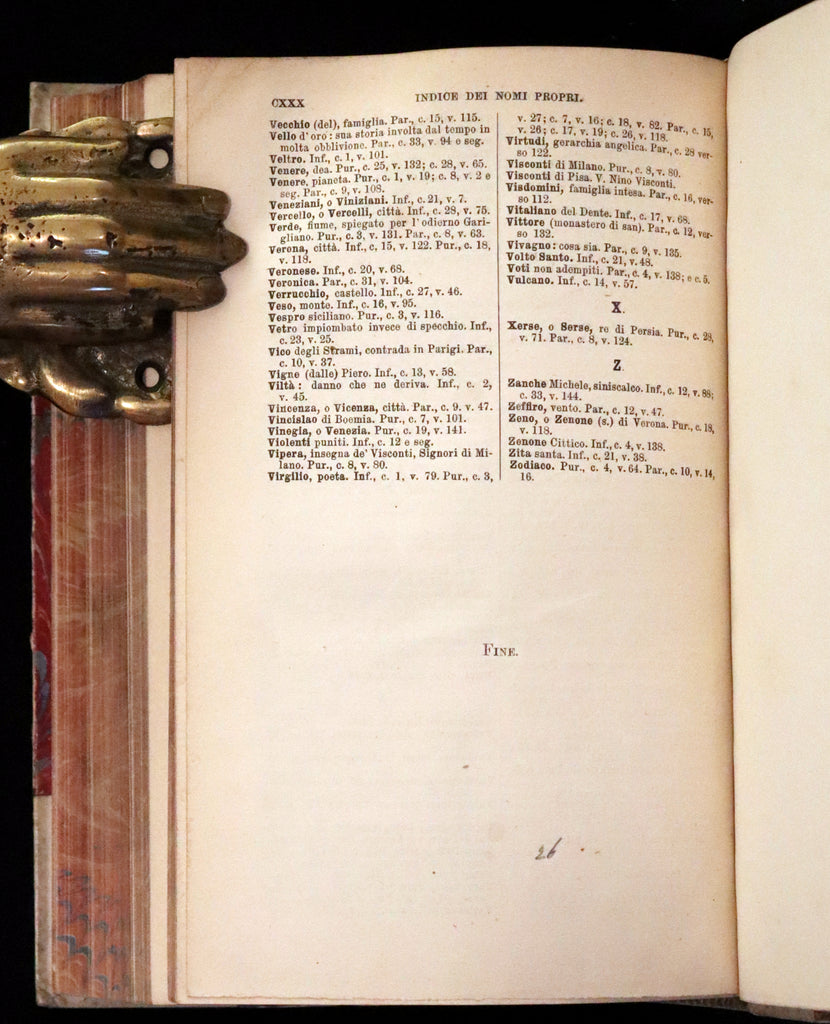 CXXX
INDICE DEI NOMI PROPRI.
Vecchio (del), famiglia. Par., c. 15, v. 115.
Vello d'oro: sua storia involta dal tempo in
molta obblivione. Par., c. 33, v. 94 e seg.
Veltro. Inf., c. 1, v. 101.
Venere, dea. Pur., c. 25, v. 132; c. 28, v. 65.
Venere, pianeta. Pur., c. 1, v. 19; c. 8, v. 2 e
seg. Par., c. 9, v. 108.
Veneziani, o Viniziani. Inf., c. 21, v. 7.
Vercello, o Vercelli, città. Inf., c. 28, v. 75.
Verde, fiume, spiegato per l'odierno Gari-
gliano. Pur., c. 3, v. 131. Par., c. 8, v. 63.
Verona, città. Inf., c. 15, v. 122. Pur., c. 18,
v. 118.
Veronese. Inf., c. 20, v. 68.
Veronica. Par., c. 31, v. 104.
Verrucchio, castello. Inf., c. 27, v. 46.
Veso, monte. Inf., c. 16, v. 95.
Vespro siciliano. Pur., c. 3, v. 116.
Vetro impiombato invece di specchio. Inf.,
c. 23, v. 25.
Vico degli Strami, contrada in Parigi. Par.,
c. 10, v. 37.
Vigne (dalle) Piero. Inf., c. 13, v. 58.
Viltà: danno che ne deriva. Inf., c. 2,
v. 45.
Vincenza, o Vicenza, città. Par., c. 9. v. 47.
Vincislao di Boemia. Pur., c. 7, v. 101.
Vinegia, o Venezia. Pur., c. 19, v. 141.
Violenti puniti. Inf., c. 12 e seg.
Vipera, insegna de' Visconti, Signori di Mi-
lano. Pur., c. 8, v. 80.
Virgilio, poeta. Inf., c. 1, v. 79. Pur., c. 3,
v. 27; c. 7, v. 16; c. 18, v. 82. Par., c. 15,
v. 26; c. 17, v. 19; c. 26, v. 118.
Virtudi, gerarchia angelica. Par., c. 28 ver-
so 122.
Visconti di Milano. Pur., c. 8, v. 80.
Visconti di Pisa. V. Nino Visconti.
Visdomini, famiglia intesa. Par., c. 16, ver-
so 112.
Vitaliano del Dente. Inf., c. 17, v. 68.
Vittore (monastero di san). Par., c. 12, ver-
so 132.
Vivagno: cosa sia. Par., c. 9, v. 135.
Volto Santo. Inf., c. 21, v. 48.
Voti non adempiti. Par., c. 4, v. 138; e c. 5.
Vulcano. Inf., c. 14, v. 57.
X.
Xerse, o Serse, re di Persia. Pur., c. 28,
v. 71. Par., c. 8, v. 124.
Z.
Zanche Michele, siniscalco. Inf., c. 12, v. 88;
c. 33, v. 144.
Zeffiro, vento. Par., c. 12, v. 47.
Zeno, o Zenone (s.) di Verona. Pur., c. 18,
v. 118.
Zenone Cittico. Inf., c. 4, v. 138.
Zita santa. Inf., c. 21, v. 38.
Zodiaco. Pur., c. 4, v. 64. Par., c. 10, v. 14,
16.
FINE.
26